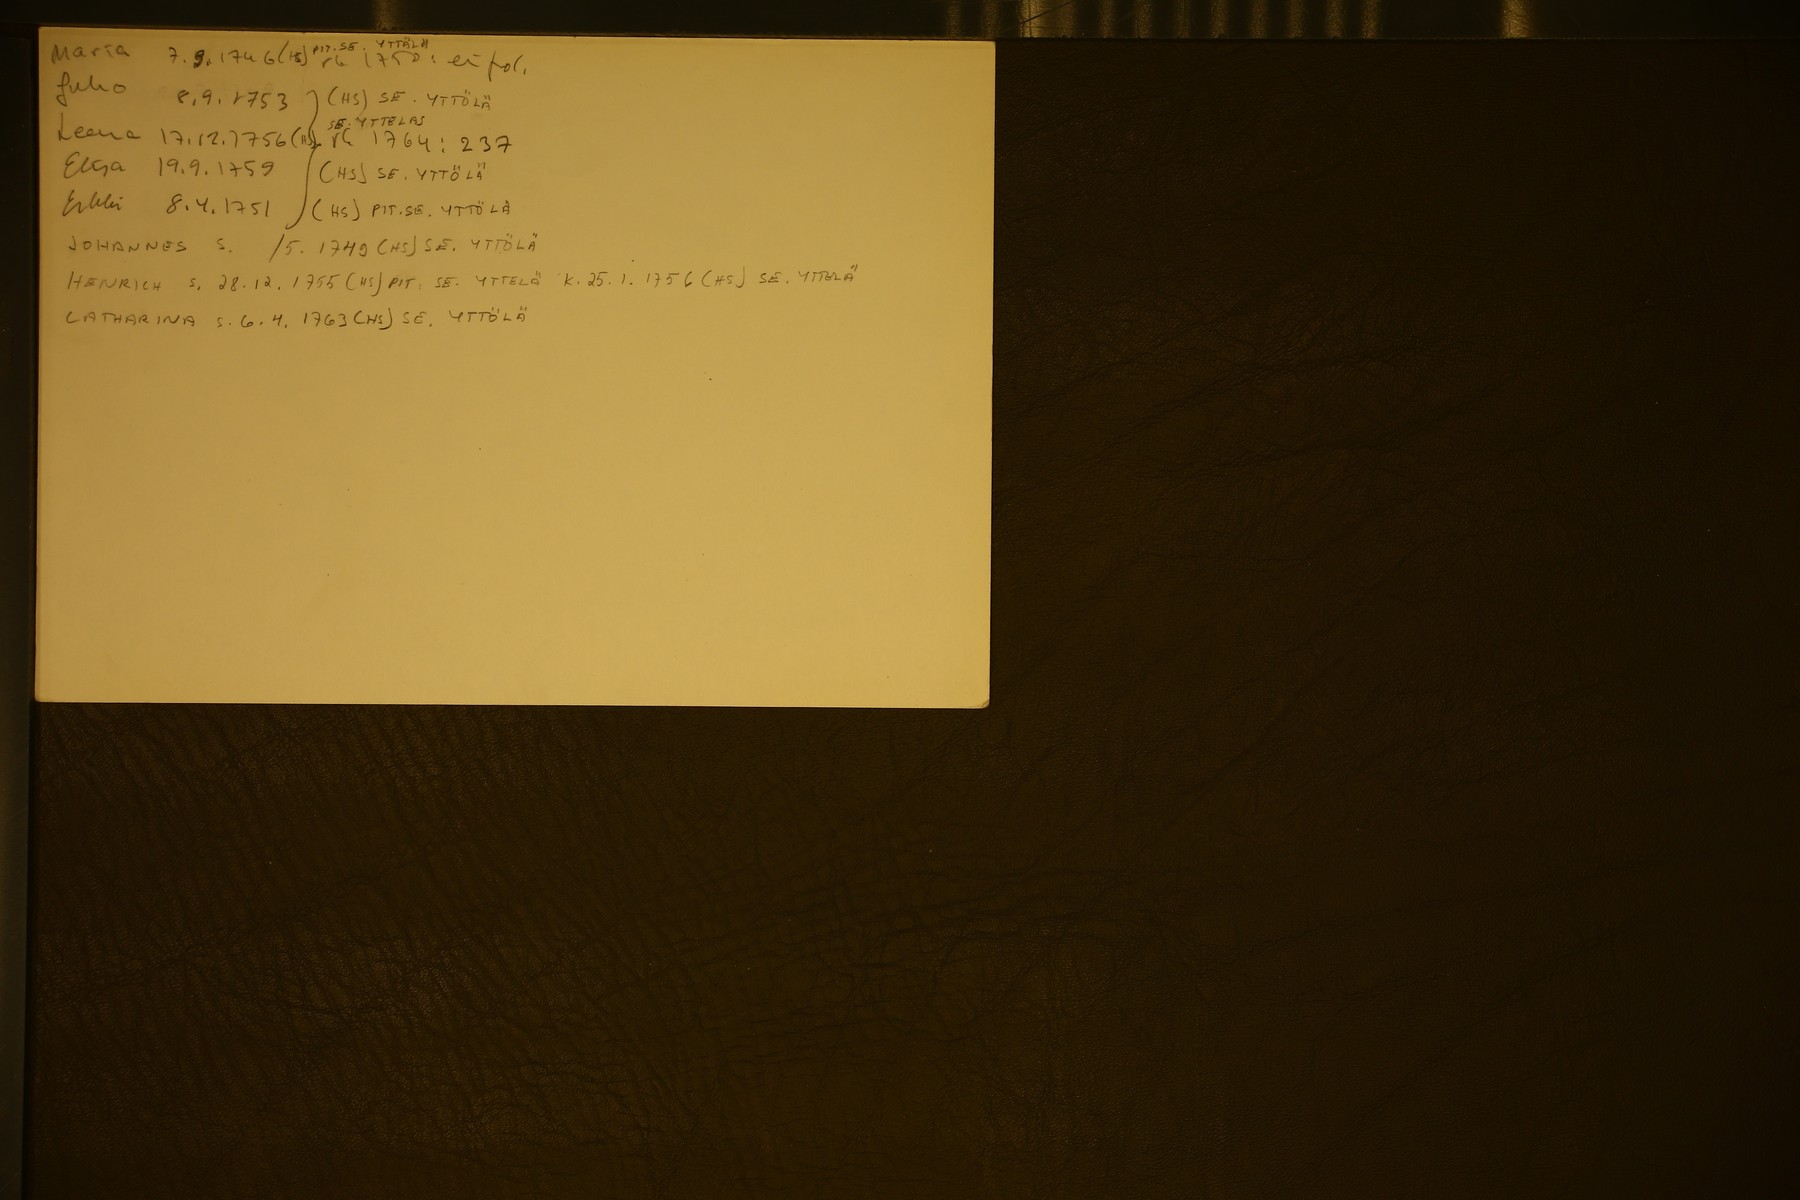 Maria 7.9.1746 (HS) PIT.SE. YTTÖLÄ rk 1750: ei fol.
Juho 8.9.1753 (HS) SE. YTTÖLÄ
SE. YTTELÄS
Leena 17.12.1756 (HS) rk 1764: 237
Elisa 19.9.1759 (HS) SE. YTTÖLÄ
Erkki 8.4.1751 (HS) PIT.SE. YTTÖLÄ
JOHANNES S. /5. 1749 (HS) SE. YTTÖLÄ
HENRICH S. 28.12.1755 (HS) PIT. SE. YTTELÄ K. 25.1.1756 (HS) SE. YTTELÄ
CATHARINA S. 6.4.1763 (HS) SE. YTTÖLÄ